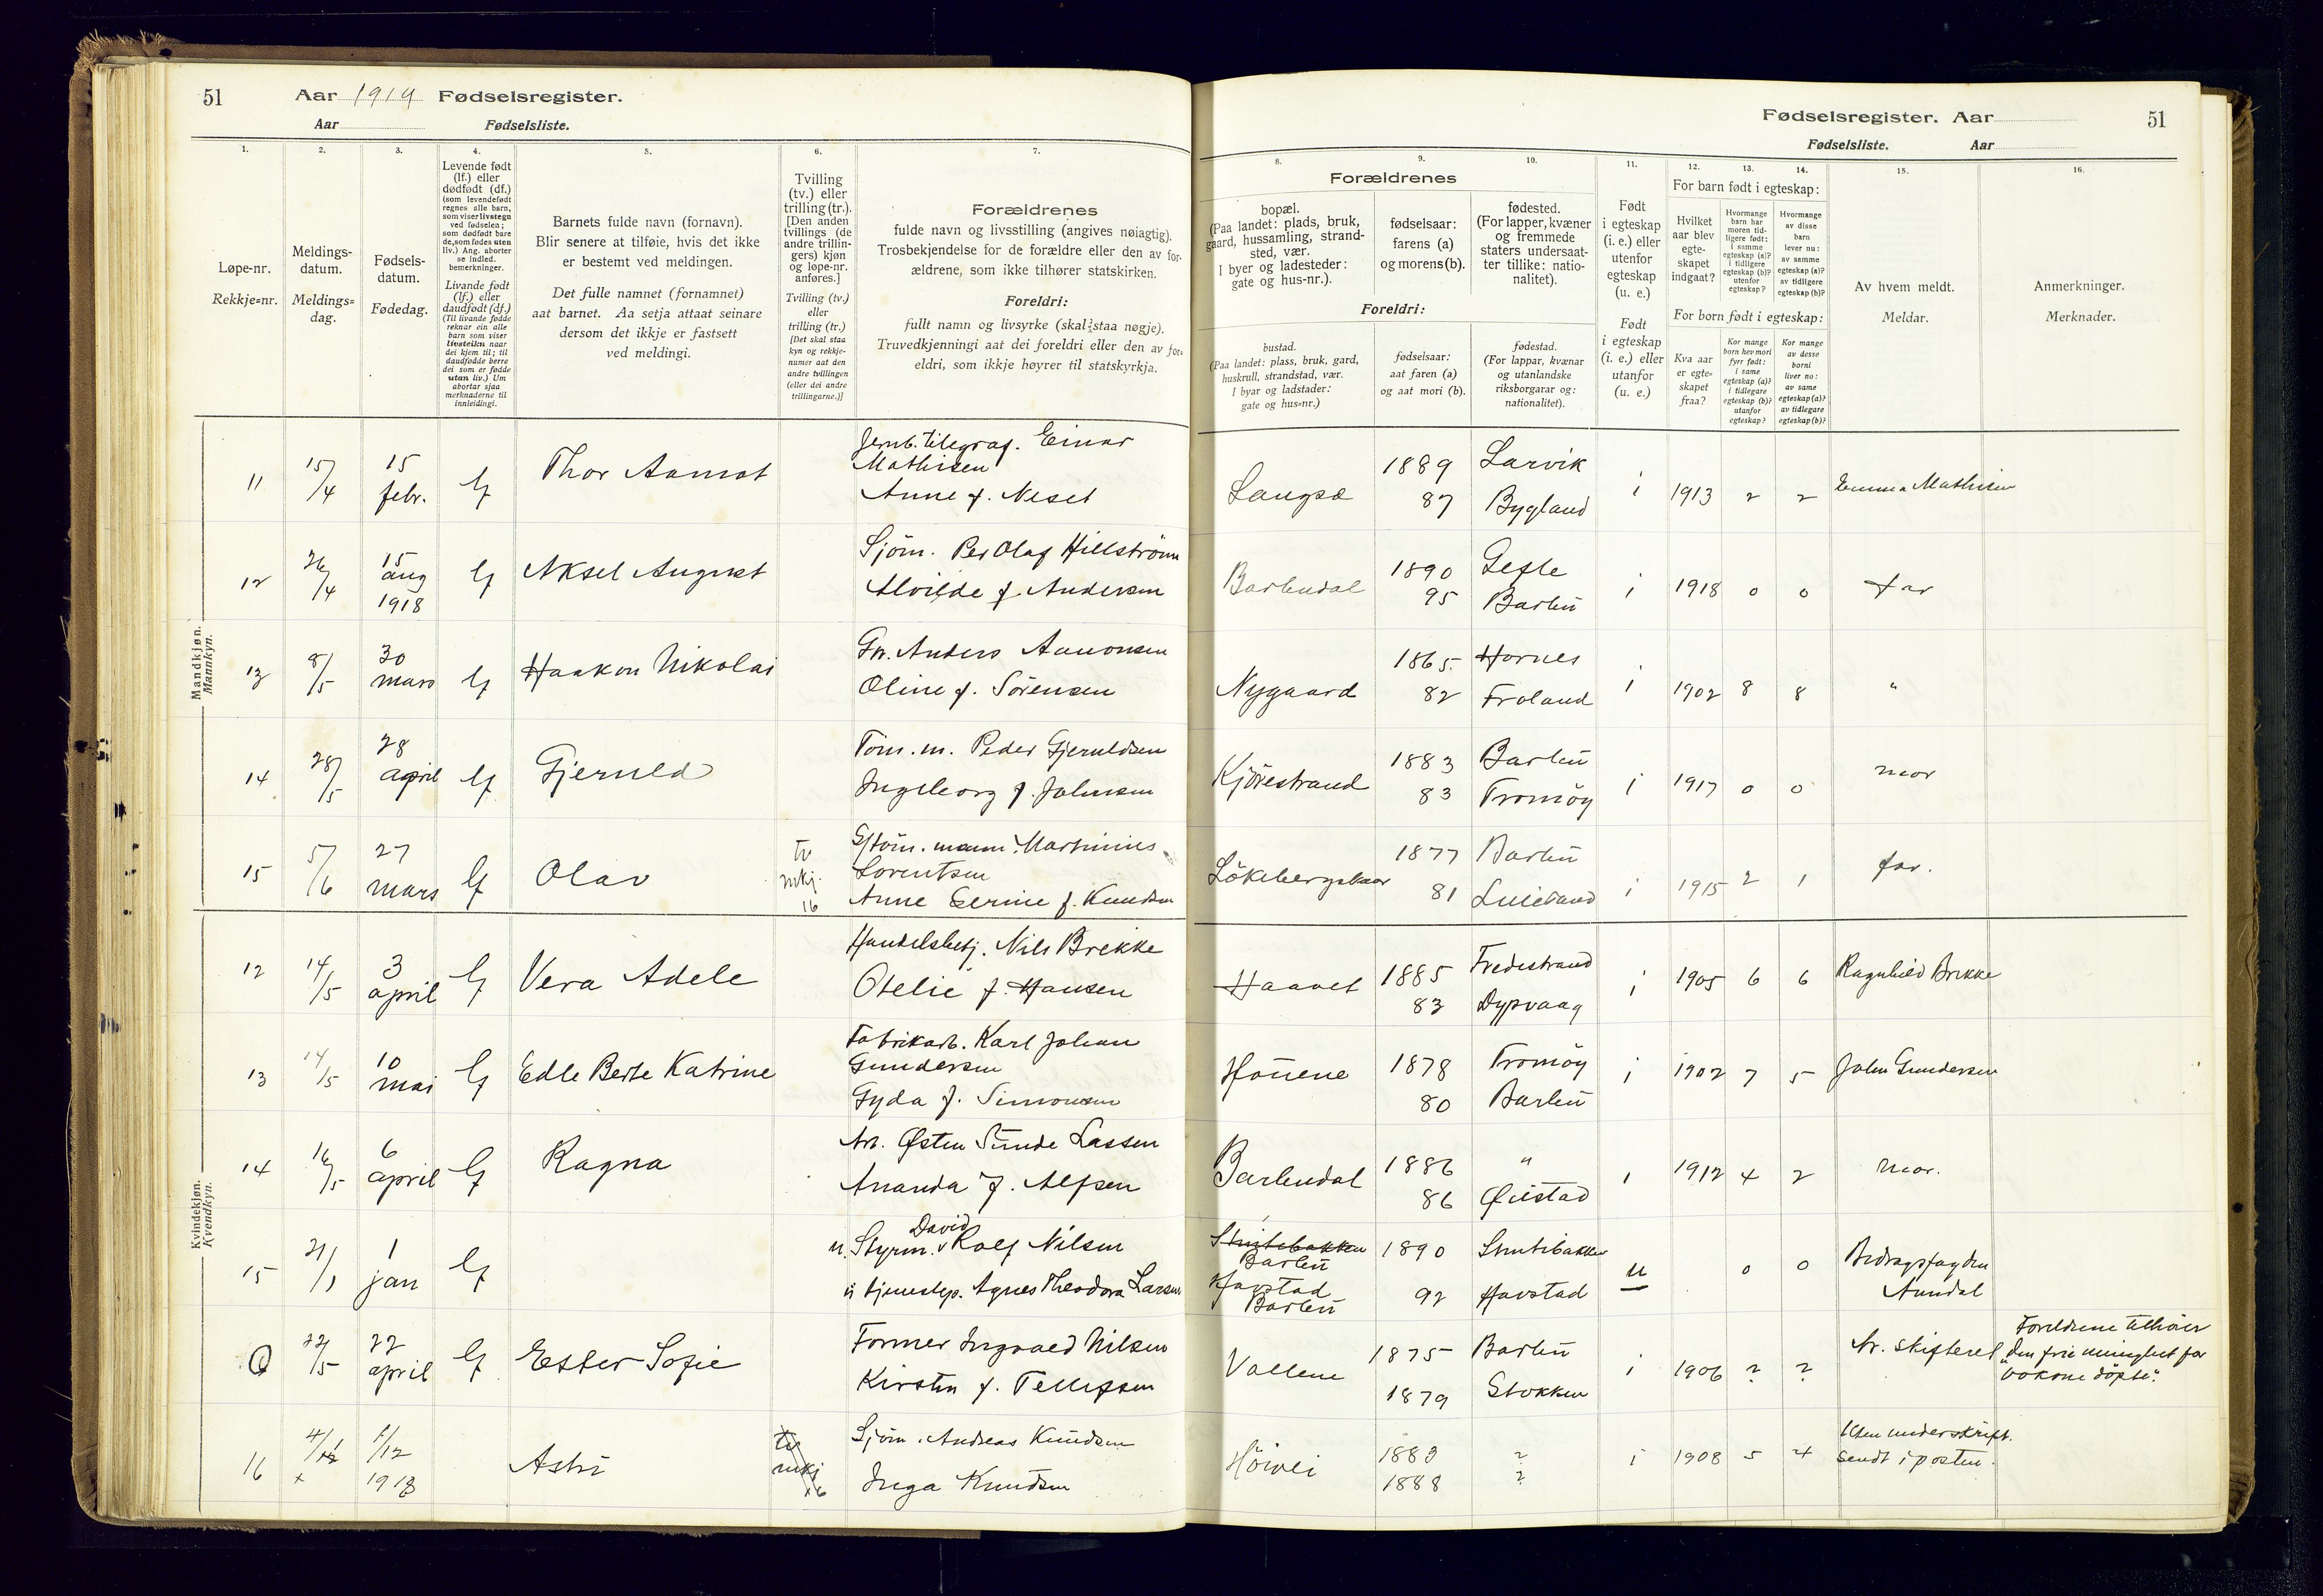 51
Aar 1919 Fødselsregister.
Aar Fødselsliste.
1.
2.
3.
4.
5.
6.
7.
Løpe-nr.
Rekkje=nr.
Meldings-
datum.
Meldings=
dag.
Fødsels-
datum.
Fødedag.
Levende født
(lf.) eller
dødfødt (df.)
(som levendefødt
regnes alle barn,
som viser livstegn
ved fødselen;
som dødfødt bare
de, som fødes uten
liv.) Ang. aborter
se indled.
bemerkninger.
Livande født
(lf.) eller
daudfødt (df.)
(Til livande fødde
reknar ein alle
barn som viser
livsteikn naar
dei kjem til; til
daudfødde berre
dei som er fødde
utan liv.) Um
abortar sjaa
merknaderne til
innleidingi.
Barnets fulde navn (fornavn).
Blir senere at tilføie, hvis det ikke
er bestemt ved meldingen.
Det fulle namnet (fornamnet)
aat barnet. Aa setja attaat seinare
dersom det ikkje er fastsett
ved meldingi.
Tvilling
(tv.) eller
trilling (tr.).
[Den anden
tvillings (de
andre trillin-
gers) kjøn
og løpe-nr.
anføres.]
Tvilling (tv.)
eller
trilling (tr.)
[Det skal staa
kyn og rekkje-
numer aat den
andre tvillingen
(eller dei andre
trillingarne.)]
Forældrenes
fulde navn og livsstilling (angives nøiagtig).
Trosbekjendelse for de forældre eller den av for-
ældrene, som ikke tilhører statskirken.
Foreldri:
fullt namn og livsyrke (skal staa nøgje).
Truvedkjenningi aat dei foreldri eller den av for=
eldri, som ikkje høyrer til statskyrkja.
Mandkjøn.
Mannkyn.
11 15/4 15 febr. lf Thor Aamot Jernb.telegraf. Einar
Mathisen
Anne f. Neset
12 26/4 15 aug 1918 lf Aksel August Sjöm. Per Olaf Hillström
Alvilde f. Andersen
13 8/5 30 mars lf Haakon Nikolai Gr. Anders Aanonsen
Oline f. Sörensen
14 28/5 28 april lf Gjeruld Töm.m. Peder Gjeruldsen
Ingeborg f. Johnsen
15 5/6 27 mars lf Olav tv mkj. 16 Martinius
Lorentsen
Anne Serine f. Knudsen
Kvindekjøn.
Kvendkyn.
12 14/5 3 april lf Vera Adele Handelsbetj. Nils Brekke
Otelie f. Hansen
13 14/5 10 mai lf Edle Berte Katrine Fabrikarb. Karl Johan
Gundersen
Gyda f. Simonsen
14 16/5 6 april lf Ragna Arb. Østen Sunde Lassen
Ananda f. Alfsen
15 21/1 1 jan lf u. Styrm. David Rolf Nilsen
tjenestep. Agnes Theodora Larsen
0 22/5 22 april lf Ester Sofie Former Ingvald Nilsen
Kirsten f. Tellefsen
16 4/12 1/12 1918 Astri tv mkj 16 Sjöm. Andreas Knudsen
Inga Knudsen
Fødselsregister. Aar
51
Fødselsliste. Aar
8.
9.
10.
11.
12.
13.
14.
15.
16.
Forældrenes
bopæl.
(Paa landet: plads, bruk,
gaard, hussamling, strand-
sted, vær.
I byer og ladesteder:
gate og hus-nr.).
fødselsaar:
farens (a)
og morens (b).
fødested.
(For lapper, kvæner
og fremmede
staters undersaat-
ter tillike: natio-
nalitet).
Foreldri:
bustad.
(Paa landet: plass, bruk, gard,
huskrull, strandstad, vær.
I byar og ladstader:
gate og hus=nr.)
fødselsaar:
aat faren (a)
og aat mori (b).
fødestad.
(For lappar, kvænar
og utanlandske
riksborgarar og:
nationalitet).
Født
i egteskap
(i. e.) eller
utenfor
egteskap
(u. e.)
Født
i egteskap
(i. e.) eller
utanfor
(u. e.)
For barn født i egteskap:
Hvilket
aar blev
egte-
skapet
indgaat?
Hvormange
barn har
moren tid-
ligere født:
i samme
egteskap (a)?
i tidligere
egteskap (b)?
utenfor
egteskap?
Hvormange
av disse
barn
lever nu:
av samme
egteskap (a)?
av tidligere
egteskap (b)?
For born født i egteskap:
Kva aar
er egte=
skapet
fraa?
Kor mange
born hev mori
fyrr født:
i same
egteskap (a)?
i tidlegare
egteskap (b)?
utanfor
egteskap?
Kor mange
av desse
borni
liver no:
av same
egteskap (a)?
av tidlegare
egteskap (b)?
Av hvem meldt.
Meldar.
Anmerkninger.
Merknader.
Langsæ 1889 87 Larvik Bygland i 1913 2 2 Emma Mathisen
Barbudal 1890 95 Gefle Barbu i 1918 0 0 far
Nygaard 1865 82 Hornes Froland i 1902 8 8 "
Kjörestrand 1883 83 Barbu Tromöy i 1917 0 0 mor
1877 81 Barbu i 1915 2 1 far.
Haavet 1885 83 Fredestrand Dypvaag i 1905 6 6 Ragnhild Brekke
1878 80 Tromöy Barbu i 1902 7 5 John Gundersen
Barbudal 1886 86 " Øiestad i 1912 4 2 mor.
Stintebakken
Barbu
Havstad
Barbu
1890 92 Stintebakken Havstad u 0 0 Bidragsfogden
Arendal
Vallene 1875 1879 Barbu Stokken i 1906 ? ? Ar. skifteret Foreldrene tilhører
"den frie menighet for
voksne döpte".
1883 1888 ? ? i 1908 5 4 Uten underskrift.
sendt i posten.